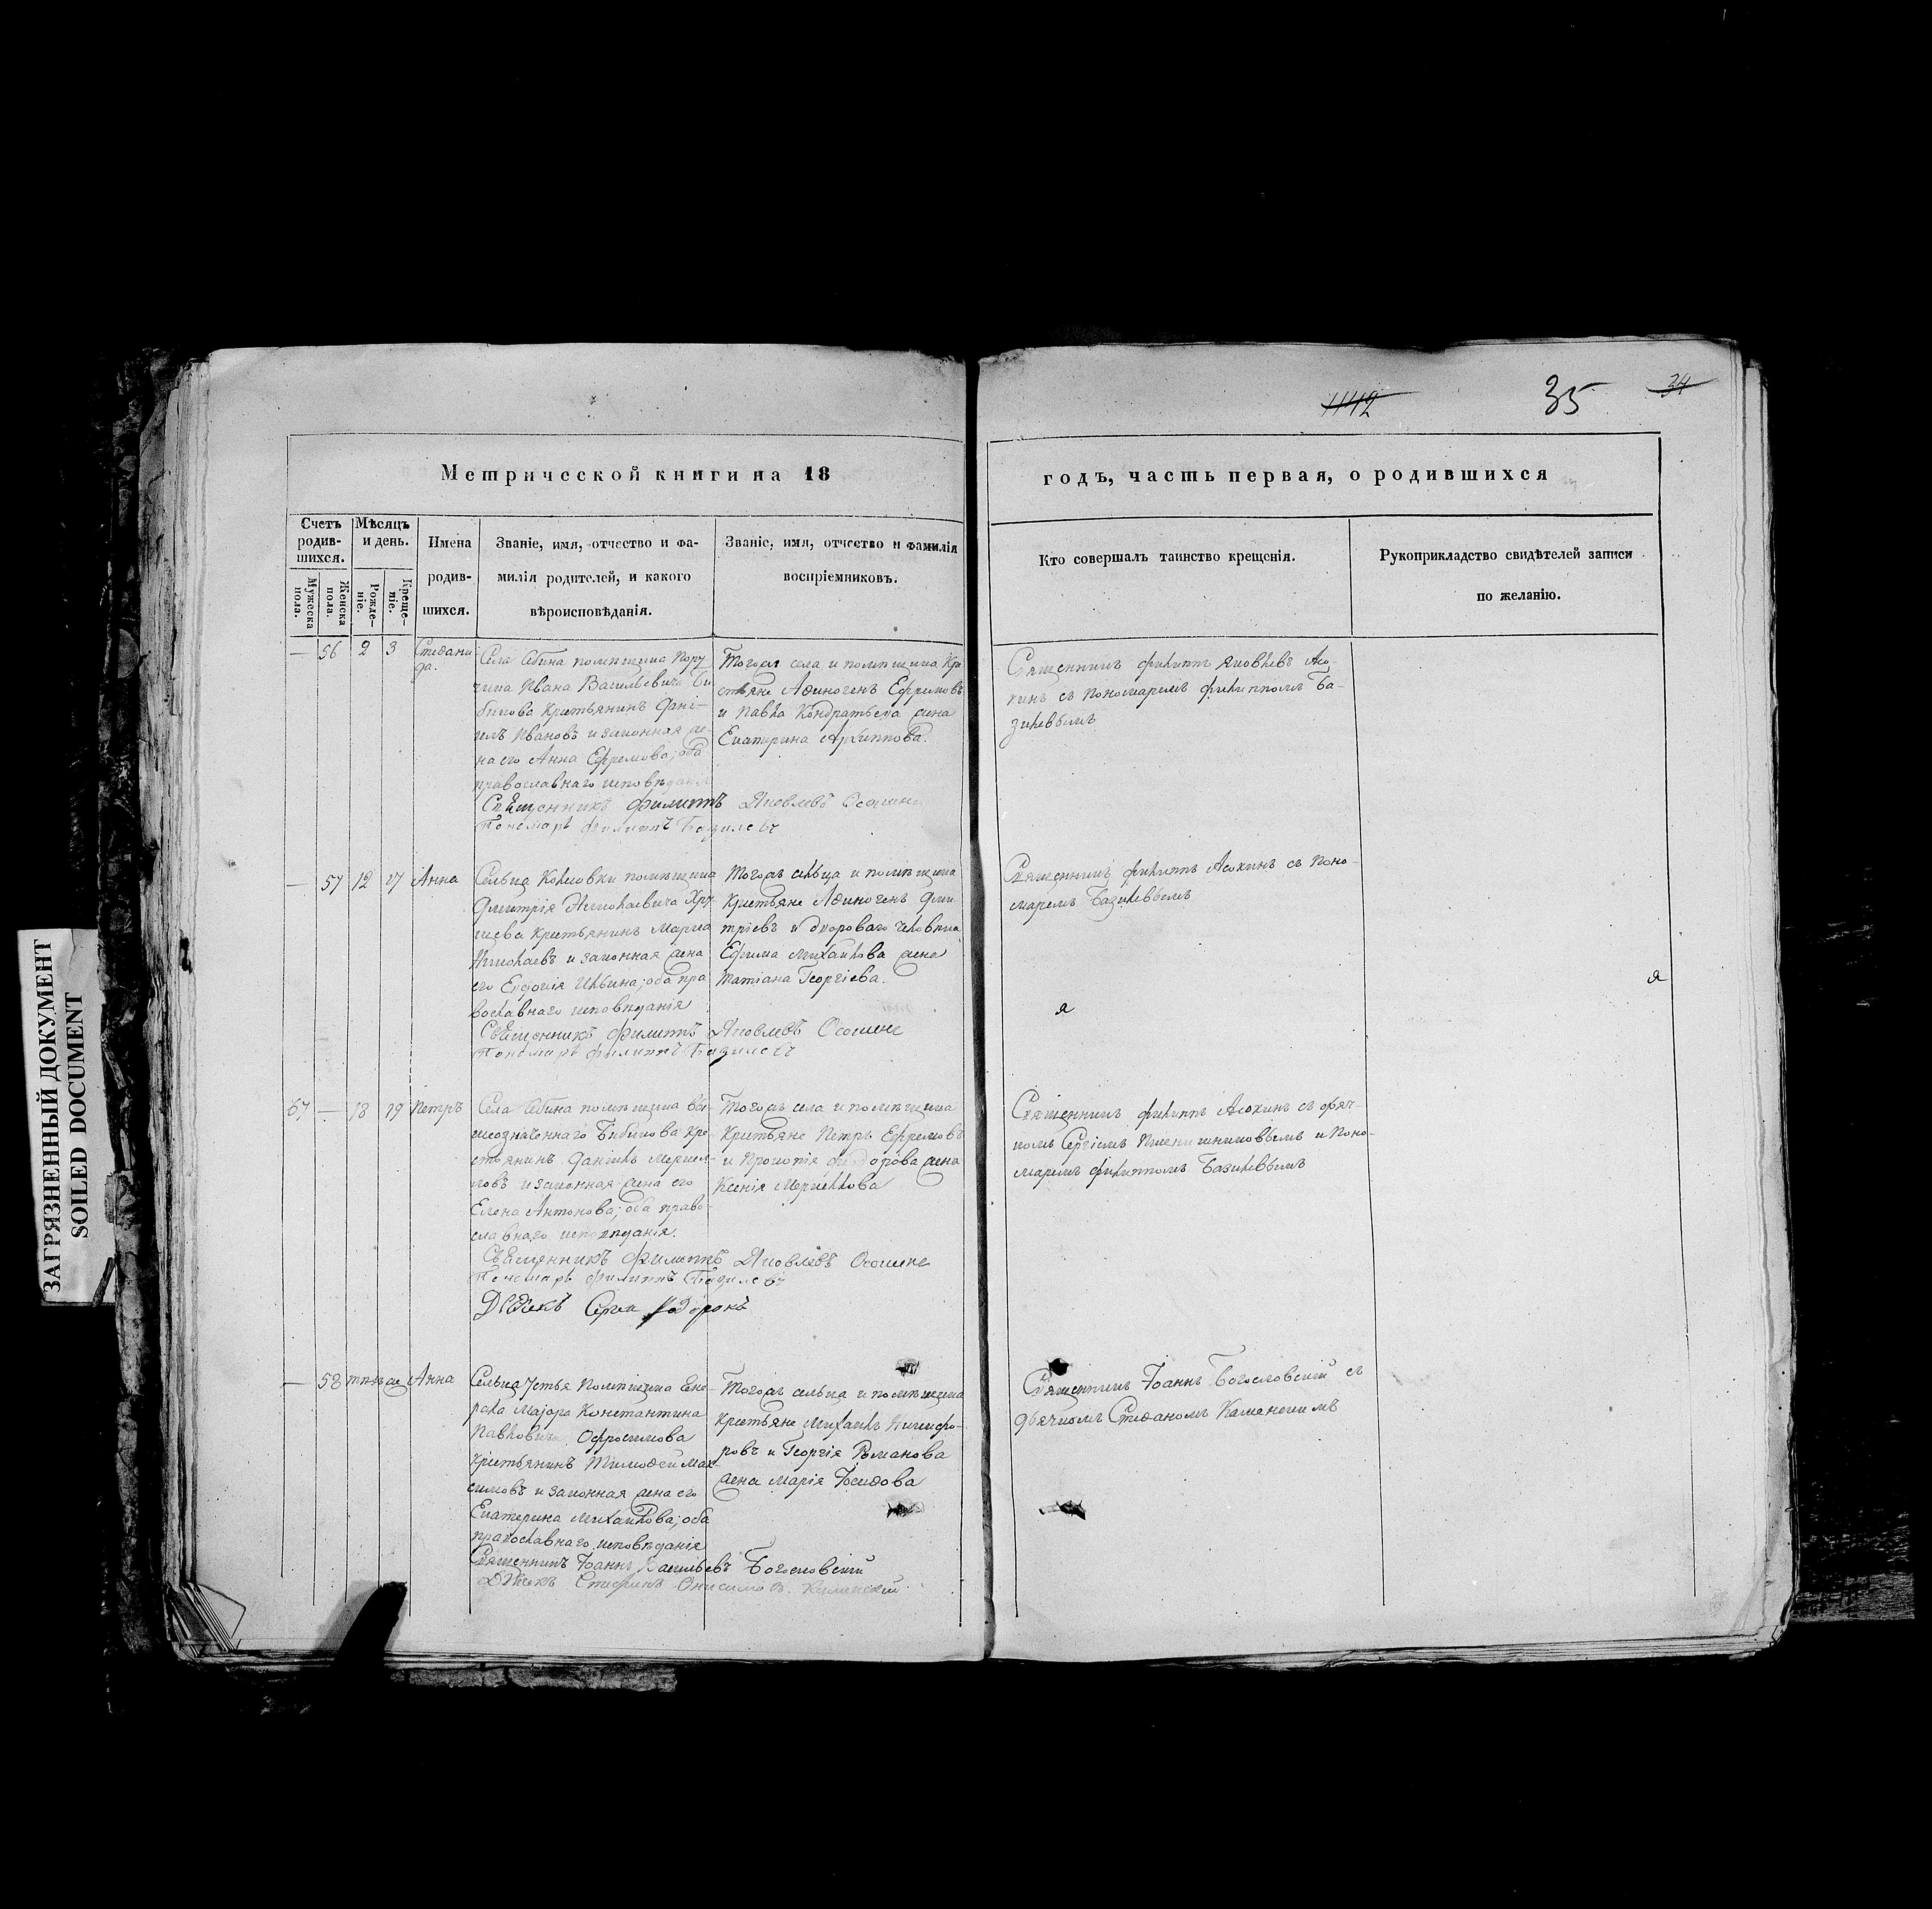 1112
35
34
Метрической книги на 18
годъ, часть первая, о родившихся
Счетъ родившихся.
Мѣсяцъ и день.
Имена родившихся.
Званіе, имя, отчество и фамилія родителей, и какого вѣроисповѣданія.
Званіе, имя, отчество и фамилія воспріемниковъ.
Кто совершалъ таинство крещенія.
Рукоприкладство свидѣтелей записи по желанію.
Мужеска пола.
Женска пола.
Рожденіе.
Крещеніе.
— 56 2 3 Стефани
да.
Села Себина помѣщика Пору
чика Ивана Васильевича Би
бикова крестьянинъ Дані-
илъ Ивановъ и законная же-
на его Анна Ефремова; оба
православнаго исповѣданія
Священникъ Филиппъ Яковлевъ
Пономарь Филиппъ Базилевъ
Тогожъ села и помѣщика Кре
стьяне Афиногенъ Ефремовъ
и Павла Кондратьева жена
Екатерина Архиппова.
Священникъ Филиппъ Яковлевъ Асо-
кинъ съ Пономаремъ Филиппомъ Ба-
зилевымъ
— 57 12 17 Анна
Сельца помѣщика
Дмитрія Николаевича Хру-
щева крестьянинъ
Николаевъ и законная жена
его Евдокія Ильина; оба пра
вославнаго исповѣданія
Священникъ Филиппъ Яковлевъ
Пономарь Филиппъ Базилевъ
Тогожъ сельца и помѣщика
Крестьяне Афиногенъ Дми
тріевъ и двороваго человѣка
Ефима Михайлова жена
Татіана Георгіева.
Священникъ Филиппъ Асокинъ съ Поно-
маремъ Базилевымъ
я
я
67 — 18 19 Петръ
Села Себина помѣщика вы-
шеозначеннаго Бибикова кре-
стьянинъ Даніилъ
и законная жена его
Елена Антонова; оба право-
славнаго исповѣданія.
Священникъ Филиппъ Яковлевъ
Пономарь Филиппъ Базилевъ
Дьячекъ Сергей
Тогожъ села и помѣщика
Крестьяне Петръ Ефремовъ
и Прокопія Федорова жена
Ксенія
Священникъ Филиппъ Асокинъ съ дьяч-
комъ Сергіемъ и Поно-
маремъ Филиппомъ Базилевымъ
— 58 Анна
Сельца Устья Помѣщика Гене-
рала Маіора Константина
Павловича Офросимова
крестьянинъ Тимофей Мак-
симовъ и законная жена его
Екатерина Михайлова; оба
православнаго исповѣданія
Священникъ Іоаннъ Васильевъ Богословскій
Дьячекъ Стефанъ Онисимовъ Каменский
Тогожъ сельца и помѣщика
крестьяне Михаилъ Никифо-
ровъ и Георгія Романова
жена Марія Іосифова
Священникъ Іоаннъ Богословскій съ
дьячкомъ Стефаномъ Каменскимъ
ЗАГРЯЗНЕННЫЙ ДОКУМЕНТ
SOILED DOCUMENT